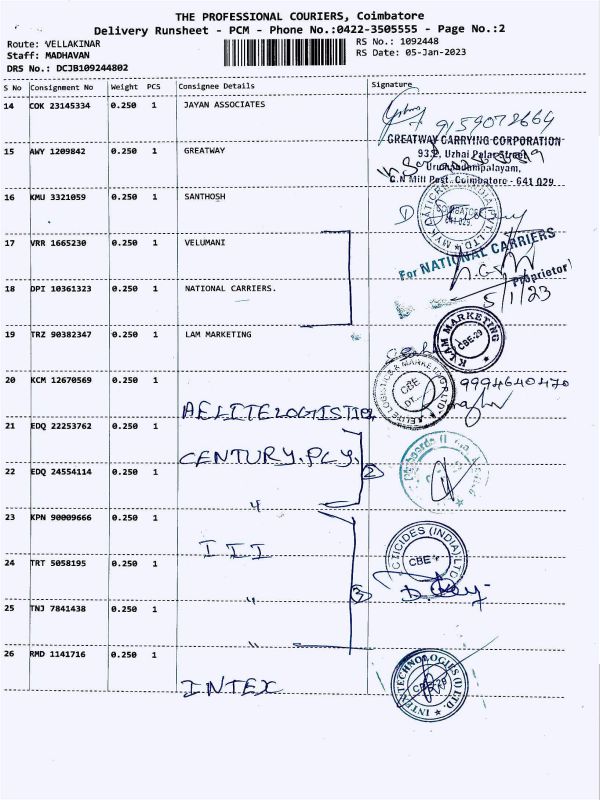 THE PROFESSIONAL COURIERS, Coimbatore
Delivery Runsheet - PCM - Phone No.:0422-3505555 - Page No.:2
Route: VELLAKINAR
RS No.: 1092448
Staff: MADHAVAN
RS Date: 05-Jan-2023
DRS No.: DCJB109244802
S No Consignment No Weight PCS Consignee Details Signature
14 COK 23145334 0.250 1 JAYAN ASSOCIATES
9159078664
GREATWAY CARRYING CORPORATION
15 AWY 1209842 0.250 1 GREATWAY
G.N Mill Post, Coimbatore - 641 029
16 KMU 3321059 0.250 1 SANTHOSH
COIMBATORE
641-029.
17 VRR 1665230 0.250 1 VELUMANI
For NATIONAL CARRIERS
Proprietor
18 DPI 10361323 0.250 1 NATIONAL CARRIERS.
5/1/23
19 TRZ 90382347 0.250 1 LAM MARKETING
K LAM MARKETING
CBE-29
20 KCM 12670569 0.250 1
AELITE LOGISTICS
AELITE LOGISTICS & MARKETING (P) LTD
CBE
9994640470
21 EDQ 22253762 0.250 1
CENTURY.PLY.
2
22 EDQ 24554114 0.250 1
"
23 KPN 90009666 0.250 1
III
CTICIDES (INDIA) LTD
CBE
24 TRT 5058195 0.250 1
"
3
25 TNJ 7841438 0.250 1
"
26 RMD 1141716 0.250 1
INTEX
INTEX TECHNOLOGIES (I) LTD.